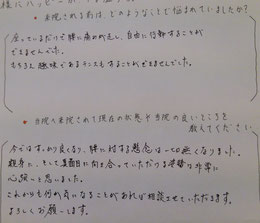 様にハッピーが
・来院される前は、どのようなことで悩まれていましたか?
座っているだけで腰に痛みが走し、自由に行動することが
できませんでした。
もちろん趣味であるテニスもすることができませんでした。
・当院へ来院されて現在の状態や当院の良いところを
教えてください
今ではすっかり良くなり、腰に対する懸念は一切無くなりました。
親身に、そして真面目に向き合っていただける姿勢は非常に
心強いと思いました。
これからも何か気になることがあれば相談させていただきます。
よろしくお願いします。